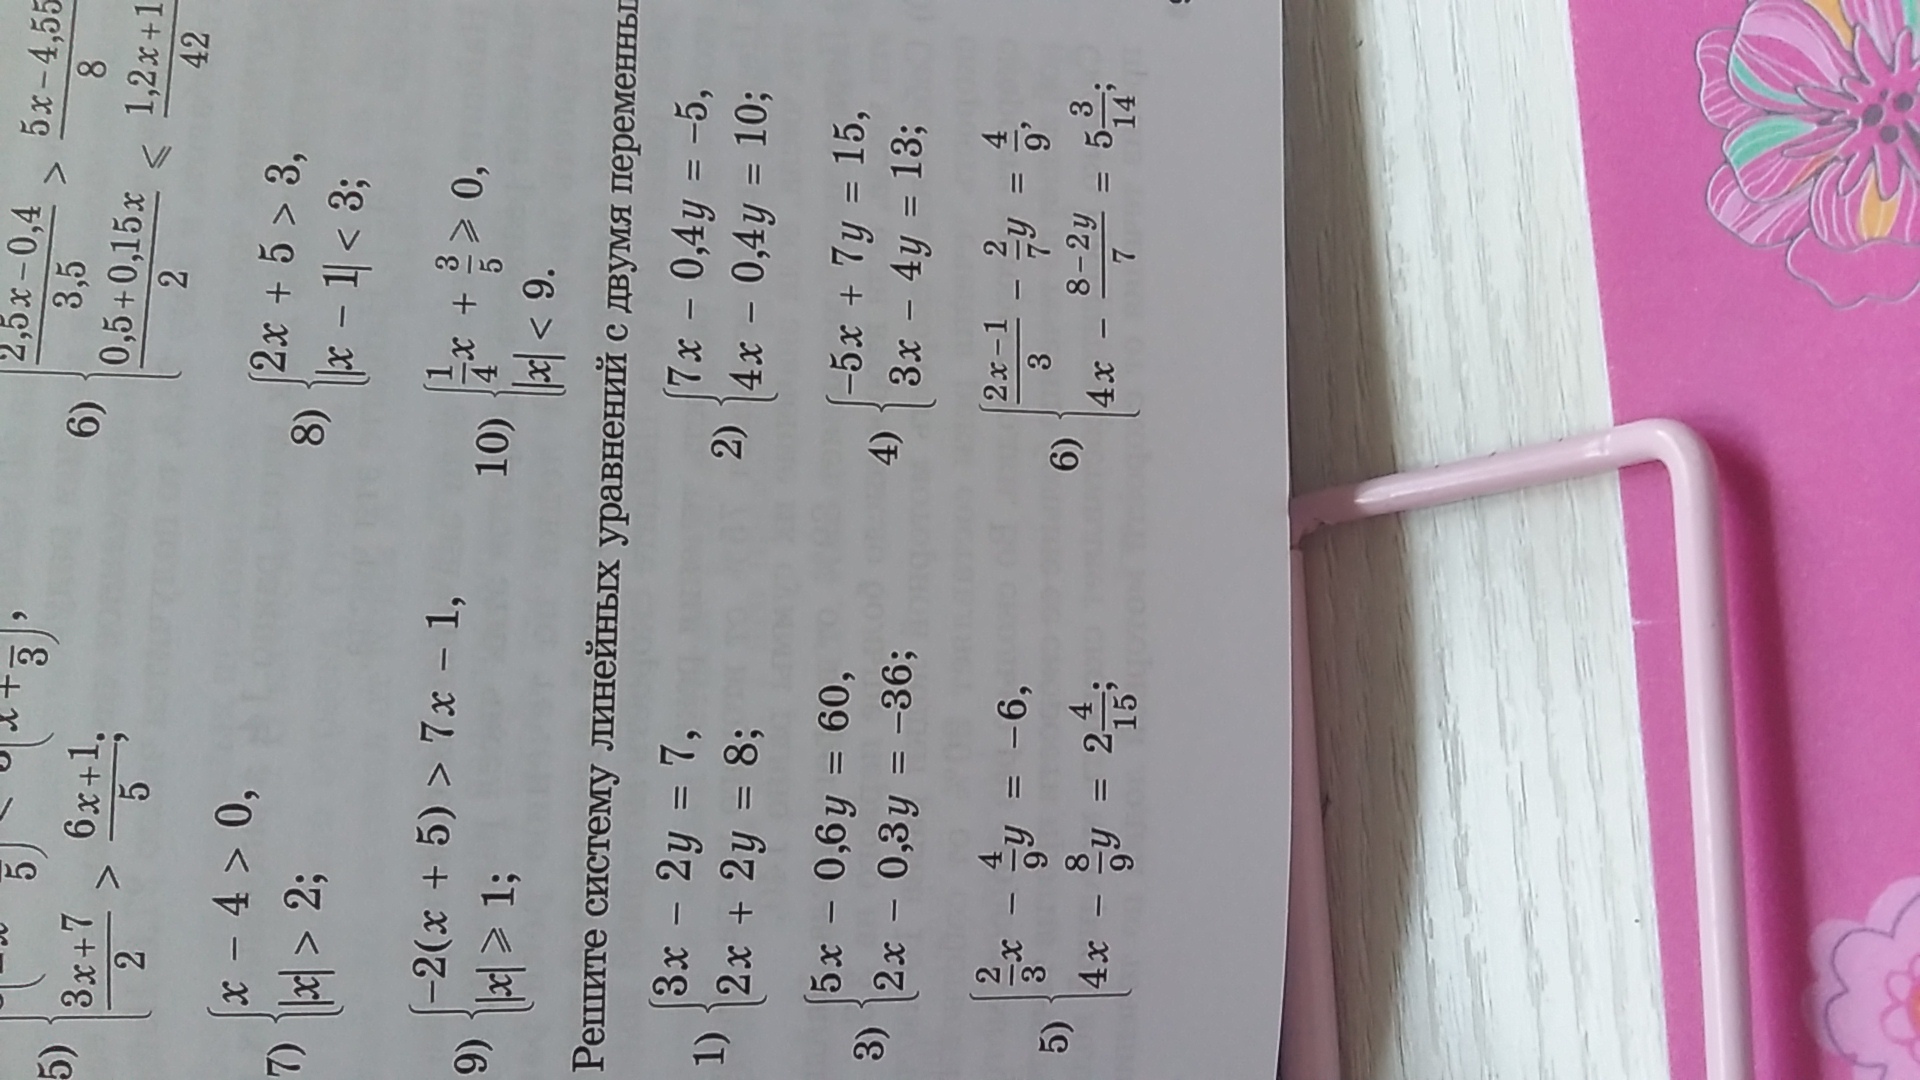 5) (3x+7)/2 > (6x+1)/5;
6) { (2,5x−0,4)/3,5 > (5x−4,55)/8
(0,5+0,15x)/2 ⩽ (1,2x+1)/42
7) { x − 4 > 0,
|x| > 2;
8) { 2x + 5 > 3,
|x − 1| < 3;
9) { −2(x + 5) > 7x − 1,
|x| ⩾ 1;
10) { 1/4 x + 3/5 ⩾ 0,
|x| < 9.
Решите систему линейных уравнений с двумя
1) { 3x − 2y = 7,
2x + 2y = 8;
2) { 7x − 0,4y = −5,
4x − 0,4y = 10;
3) { 5x − 0,6y = 60,
2x − 0,3y = −36;
4) { −5x + 7y = 15,
3x − 4y = 13;
5) { 2/3 x − 4/9 y = −6,
4x − 8/9 y = 2 4/15;
6) { (2x−1)/3 − 2/7 y = 4/9,
4x − (8−2y)/7 = 5 3/14;